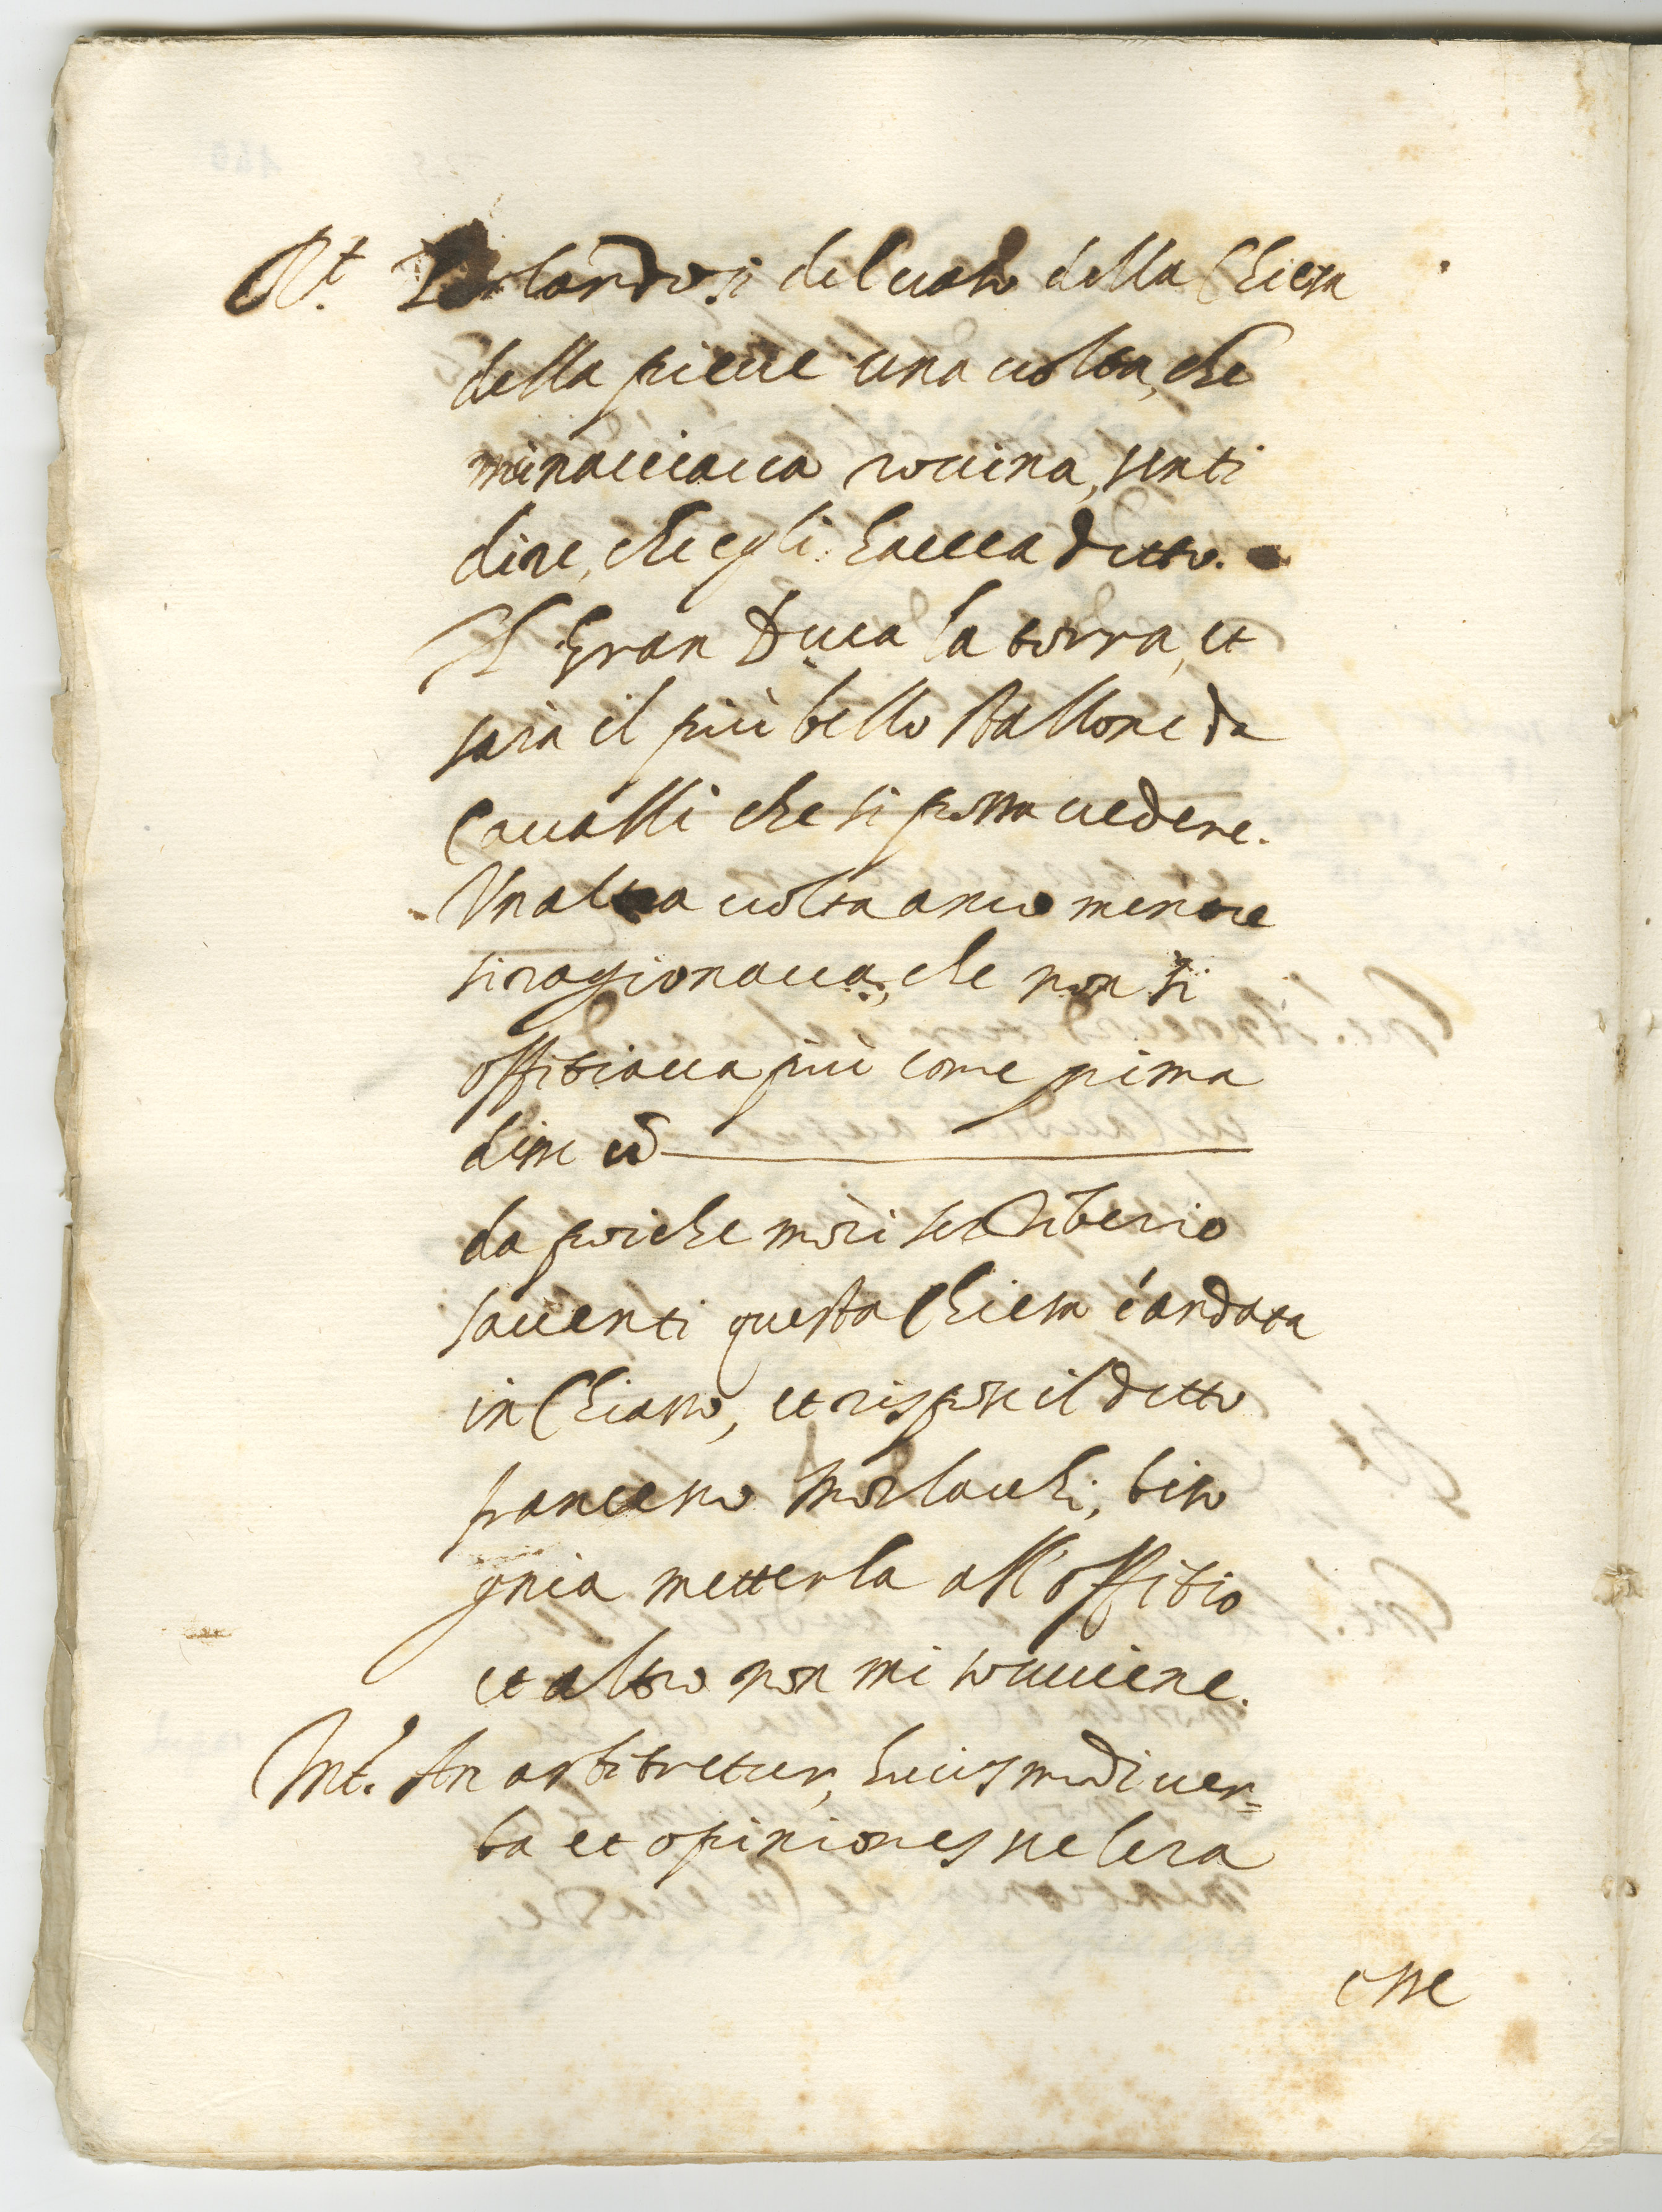 Rt. Parlandosi del uolto della Chiesa
della pieue una uolta, che
minacciaua rouina, senti
dire, che egli haueua detto.
Il Gran Duca la torrà, et
sarà il più bello stallone da
Caualli che si possa uedere.
Vnaltra uolta anco mentre
si ragionaua, che non si
offitiaua più come prima
disse
da poi che morì ser Tiberio
sauenti questa Chiesa é andata
in Chiasso, et rispose il detto
francesco Morlacchi, biso
gnia metterla all'offitio
et altro non mi souuiene.
Int. An arbitretur, huiusmodi uer=
ba et opiniones scelera
esse